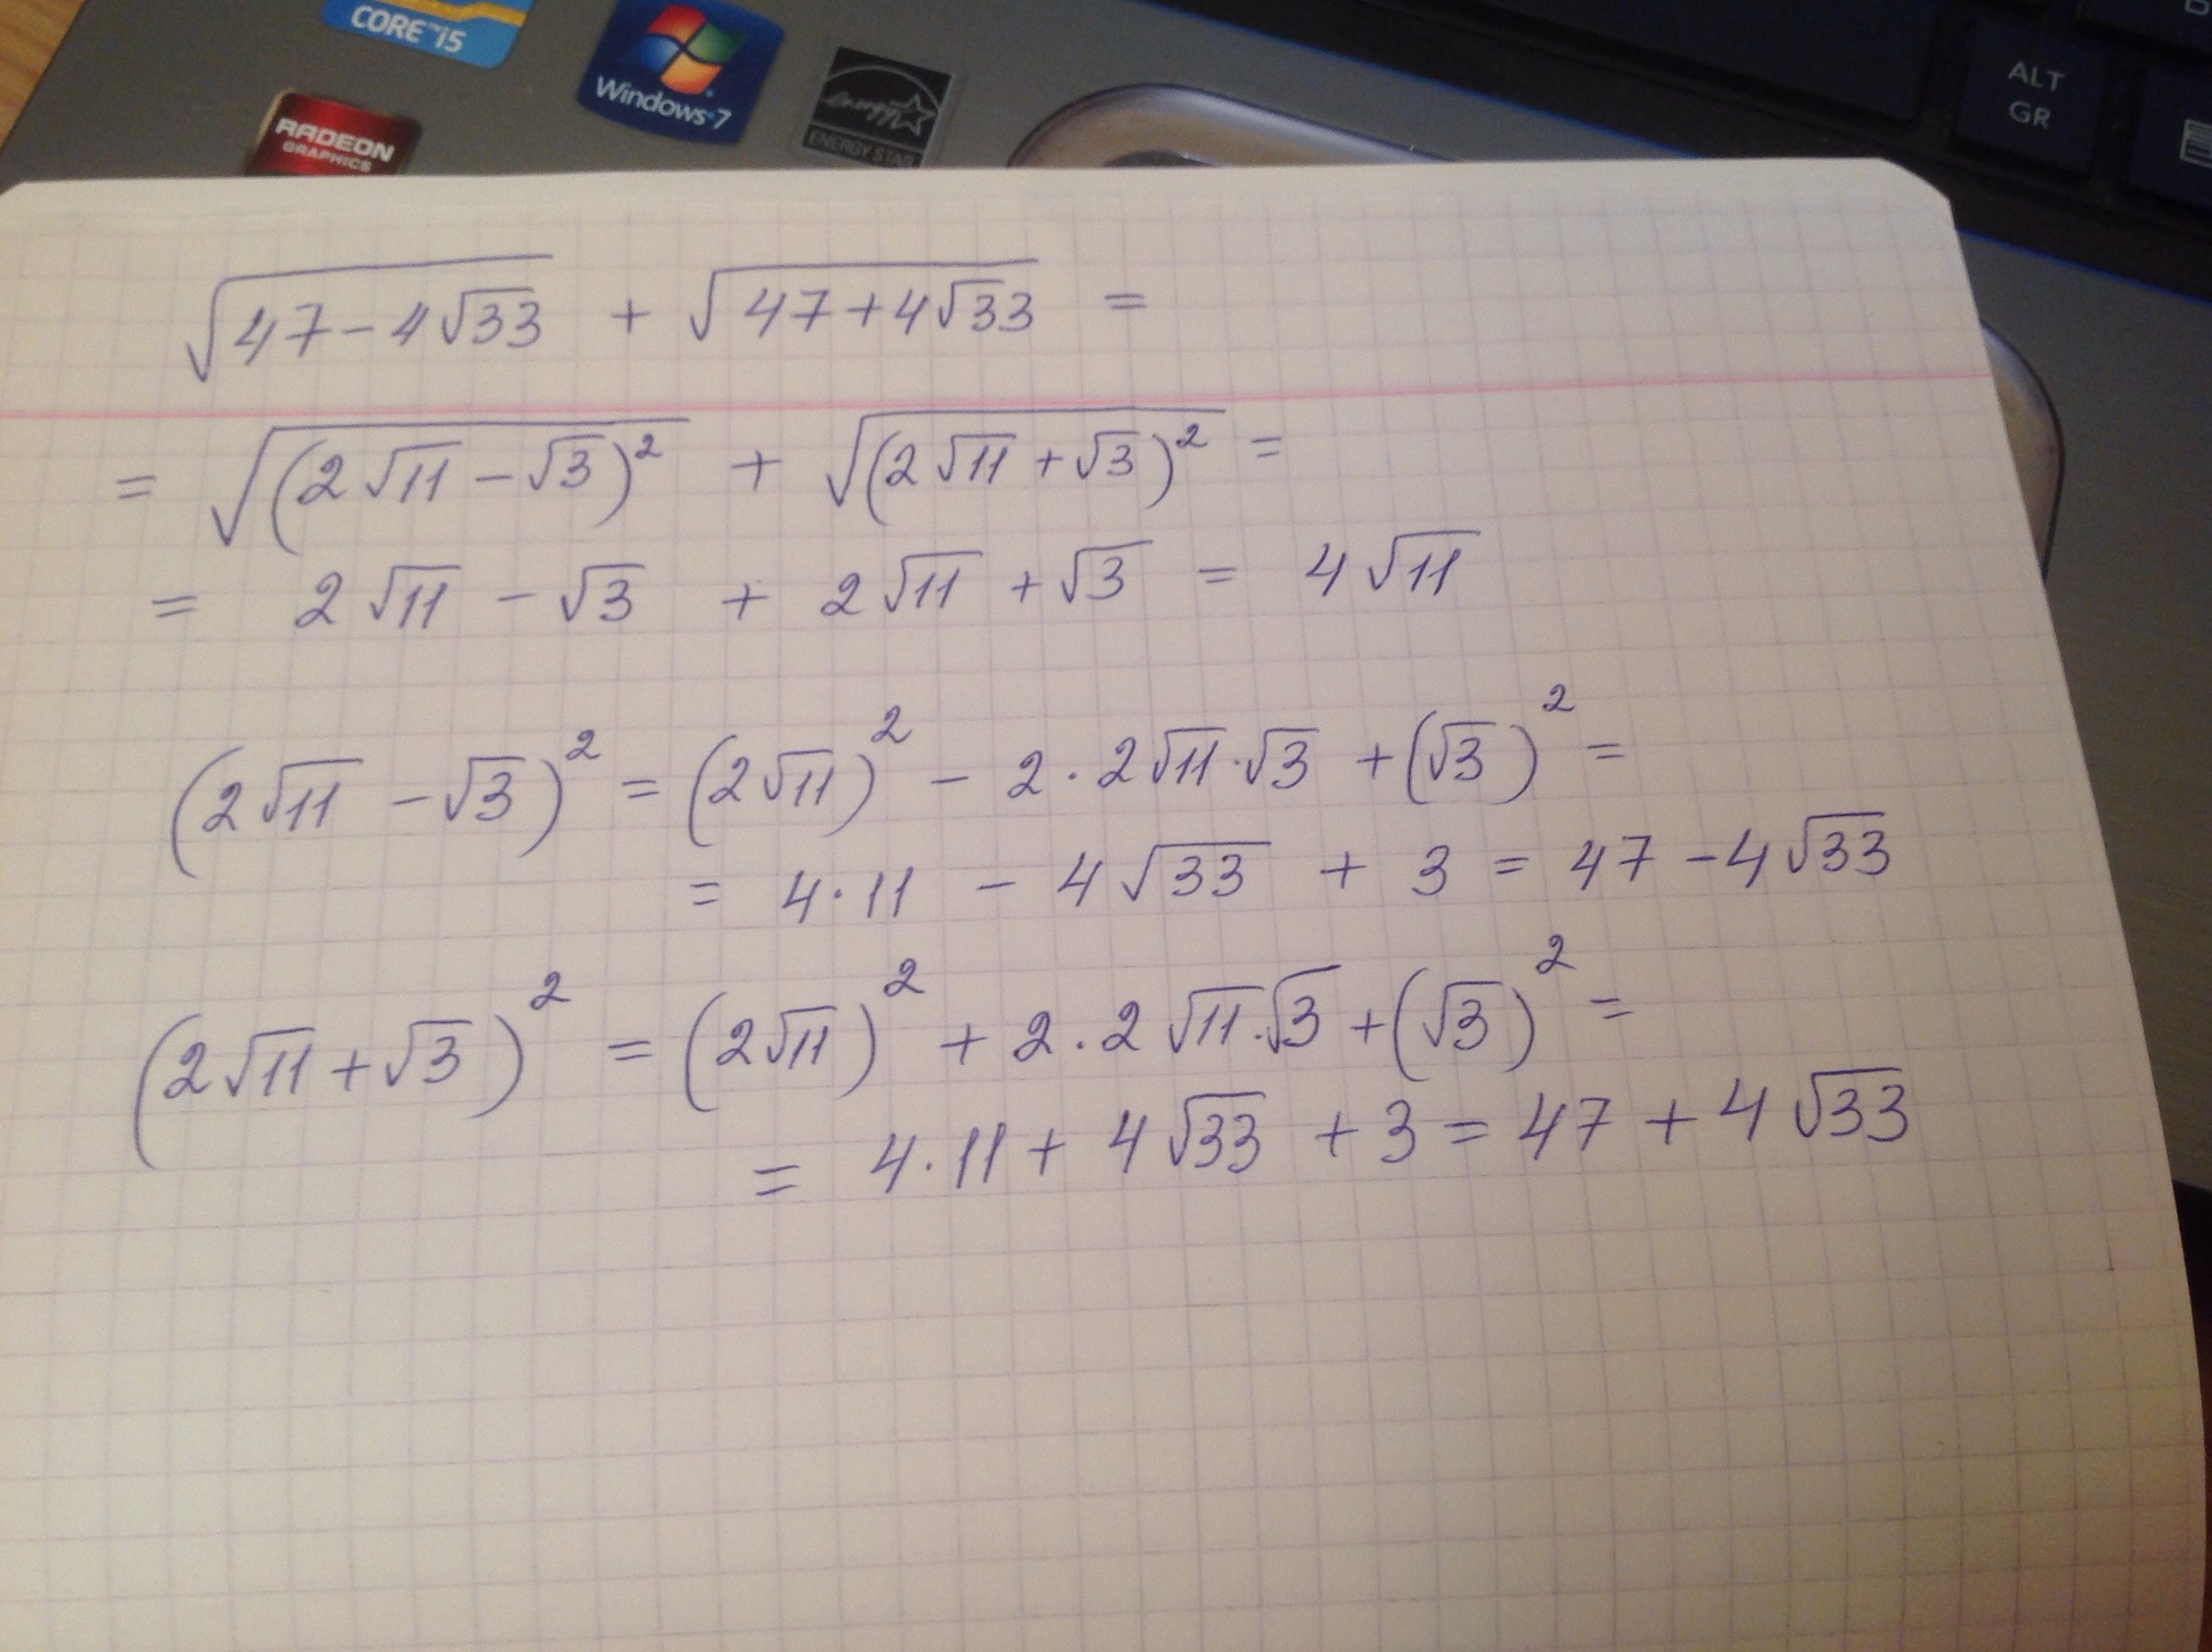 CORE™ i5
Windows 7
RADEON
GRAPHICS
energy
ENERGY STAR
ALT
GR
√(47 − 4√33) + √(47 + 4√33) =
= √((2√11 − √3)²) + √((2√11 + √3)²) =
= 2√11 − √3 + 2√11 + √3 = 4√11
(2√11 − √3)² = (2√11)² − 2·2√11·√3 + (√3)² =
= 4·11 − 4√33 + 3 = 47 − 4√33
(2√11 + √3)² = (2√11)² + 2·2√11·√3 + (√3)² =
= 4·11 + 4√33 + 3 = 47 + 4√33